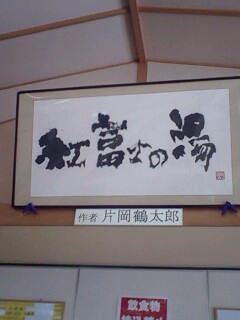 紅富士の湯
作者 片岡鶴太郎
飲食物